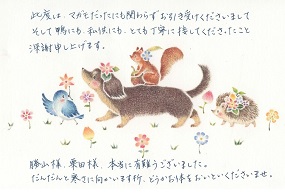 此度は、マガモだったにも関わらずお引き受けくださいまして
そして鴨にも、私供にも、とても丁寧に接してくださったこと
深謝申し上げます。
勝山様、栗田様、本当に有難うございました。
だんだんと寒さに向かいます折、どうかお体をおいといくださいませ。